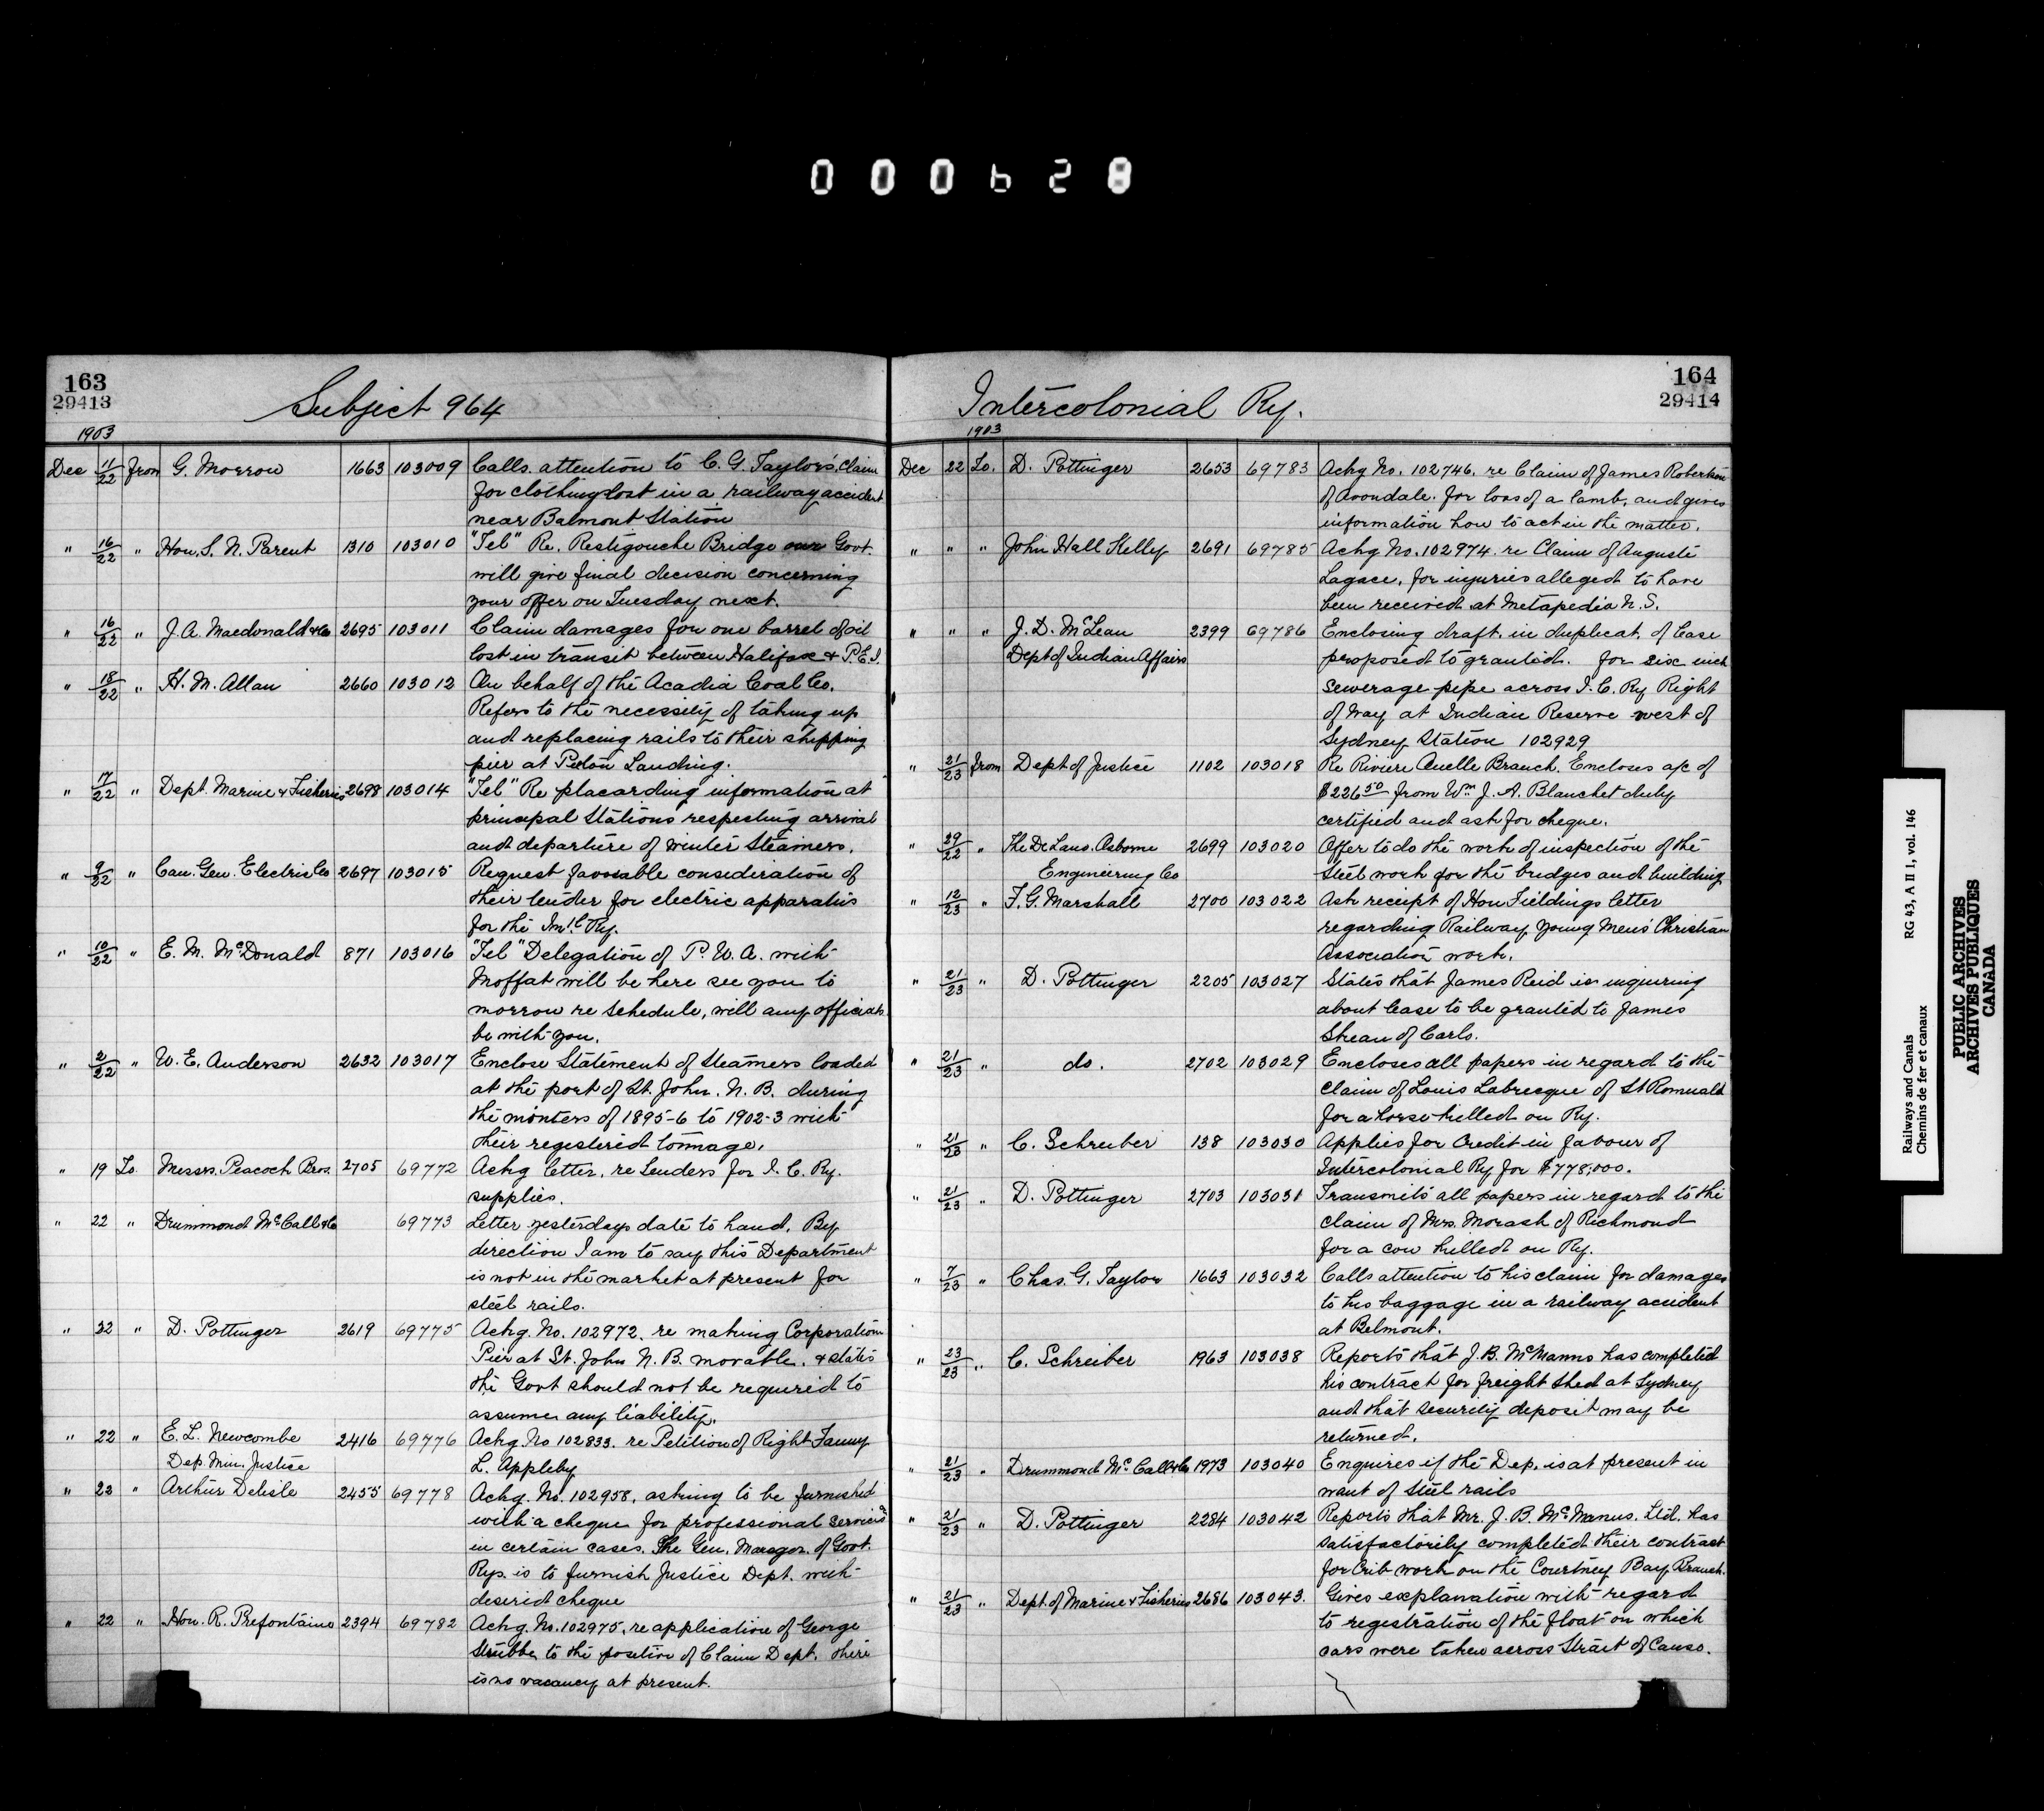 000628
163
29413
Subject 964
1903
Dec 11/22 from G. Morrow 1663 103009 Calls attention to C. G. Taylor's claim
for clothing lost in a railway accident
near Balmont Station
" 16/22 " Hon. S. N. Parent 1310 103010 "Tel" Re. Restigouche Bridge our Govt.
will give final decision concerning
your offer on Tuesday next.
" 16/22 " J. A. Macdonald & Co 2695 103011 Claim damages for one barrel of oil
lost in transit between Halifax & P.E.I.
" 18/22 " H. M. Allan 2660 103012 On behalf of the Acadia Coal Co.
Refers to the necessity of taking up
and replacing rails to their shipping
pier at Landing.
" 17/22 " Dept. Marine & Fisheries 2698 103014 "Tel" Re placarding information at
principal Stations respecting arrival
and departure of winter Steamers.
" 9/22 " Can. Gen. Electric Co 2697 103015 Request favorable consideration of
their tender for electric apparatus
for the Int. C Ry.
" 10/22 " E. M. McDonald 871 103016 "Tel" Delegation of P. W. A. with
Moffat will be here see you to
morrow re schedule, will any officials
be with you.
" 2/22 " W. E. Anderson 2632 103017 Enclose Statement of Steamers loaded
at the port of St. John. N. B. during
the winters of 1895-6 to 1902-3 with
their registered tonnage.
" 19 To. Messrs. Peacock Bros. 2705 69772 Ackg letter. re Tenders for I. C. Ry.
supplies.
" 22 " Drummond McCall & Co 69773 Letter yesterdays date to hand. By
direction I am to say this Department
is not in the market at present for
steel rails.
" 22 " D. Pottinger 2619 69775 Ackg. No. 102972. re making Corporation
Pier at St. John N. B. movable. & states
the Govt should not be required to
assume any liability.
" 22 " E. L. Newcombe 2416 69776 Ackg. No 102833. re Petition of Right Fanny
Dep. Min. Justice L. Appleby
" 22 " Arthur Delisle 2455 69778 Ackg. No. 102958, asking to be furnished
with a cheque for professional services
in certain cases. The Gen. Manager. of Govt.
Rys. is to furnish Justice Dept. with
desired cheque
" 22 " Hon. R. Prefontaine 2394 69782 Ackg. No. 102975, re application of George
to the position of Claim Dept. there
is no vacancy at present.
164
29414
Intercolonial Ry.
1903
Dec 22 To. D. Pottinger 2653 69783 Ackg No. 102746. re Claim of James Robertson
of Avondale. for loss of a lamb, and gives
information how to act in the matter.
" " " John Hall Kelly 2691 69785 Ackg No. 102974. re Claim of Auguste
Lagace, for injuries alleged to have
been received at Metapedia N. S.
" " " J. D. McLean 2399 69786 Enclosing draft. in duplicat. of lease
Dept of Indian Affairs proposed to granted. for six inch
sewerage pipe across I. C. Ry Right
of way at Indian Reserve west of
Sydney Station 102929
" 21/23 from Dept of Justice 1102 103018 Re Riviere Ouelle Branch. Encloses a/c of
$226.50 from Wm. J. A. Blanchet duly
certified and ask for cheque.
" 29/22 " The De Lano. Osborne 2699 103020 Offer to do the work of inspection of the
Engineering Co Steel work for the bridges and building
" 12/23 " F. G. Marshall 2700 103022 Ask receipt of Hon Fieldings letter
regarding Railway Young Men's Christian
Association work.
" 21/23 " D. Pottinger 2205 103027 States that James Reid is inquiring
about lease to be granted to James
of Carlo.
" 21/23 " do. 2702 103029 Encloses all papers in regard to the
claim of Louis Labrecque of St Romuald
for a horse killed on Ry.
" 21/23 " C. Schreiber 138 103030 Applies for Credit in favour of
Intercolonial Ry for $778,000.
" 21/23 " D. Pottinger 2703 103031 Transmits all papers in regard to the
claim of Mrs. Morash of Richmond
for a cow killed on Ry.
" 7/23 " Chas. G. Taylor 1663 103032 Calls attention to his claim for damages
to his baggage in a railway accident
at Belmont.
" 23/23 " C. Schreiber 1963 103038 Reports that J. B. McManus has completed
his contract for freight shed at Sydney
and that security deposit may be
returned.
" 21/23 " Drummond McCall & Co 1973 103040 Enquires if the Dep. is at present in
want of Steel rails
" 21/23 " D. Pottinger 2284 103042 Reports that Mr. J. B. McManus. Ltd. has
satisfactorily completed their contract
for Crib work on the Courtney Bay Branch.
" 21/23 " Dept. of Marine & Fisheries 2686 103043. Gives explanation with regard
to registration of the float on which
cars were taken across Strait of Canso.
Railways and Canals RG 43, A II 1, vol. 146
Chemins de fer et canaux
PUBLIC ARCHIVES
ARCHIVES PUBLIQUES
CANADA